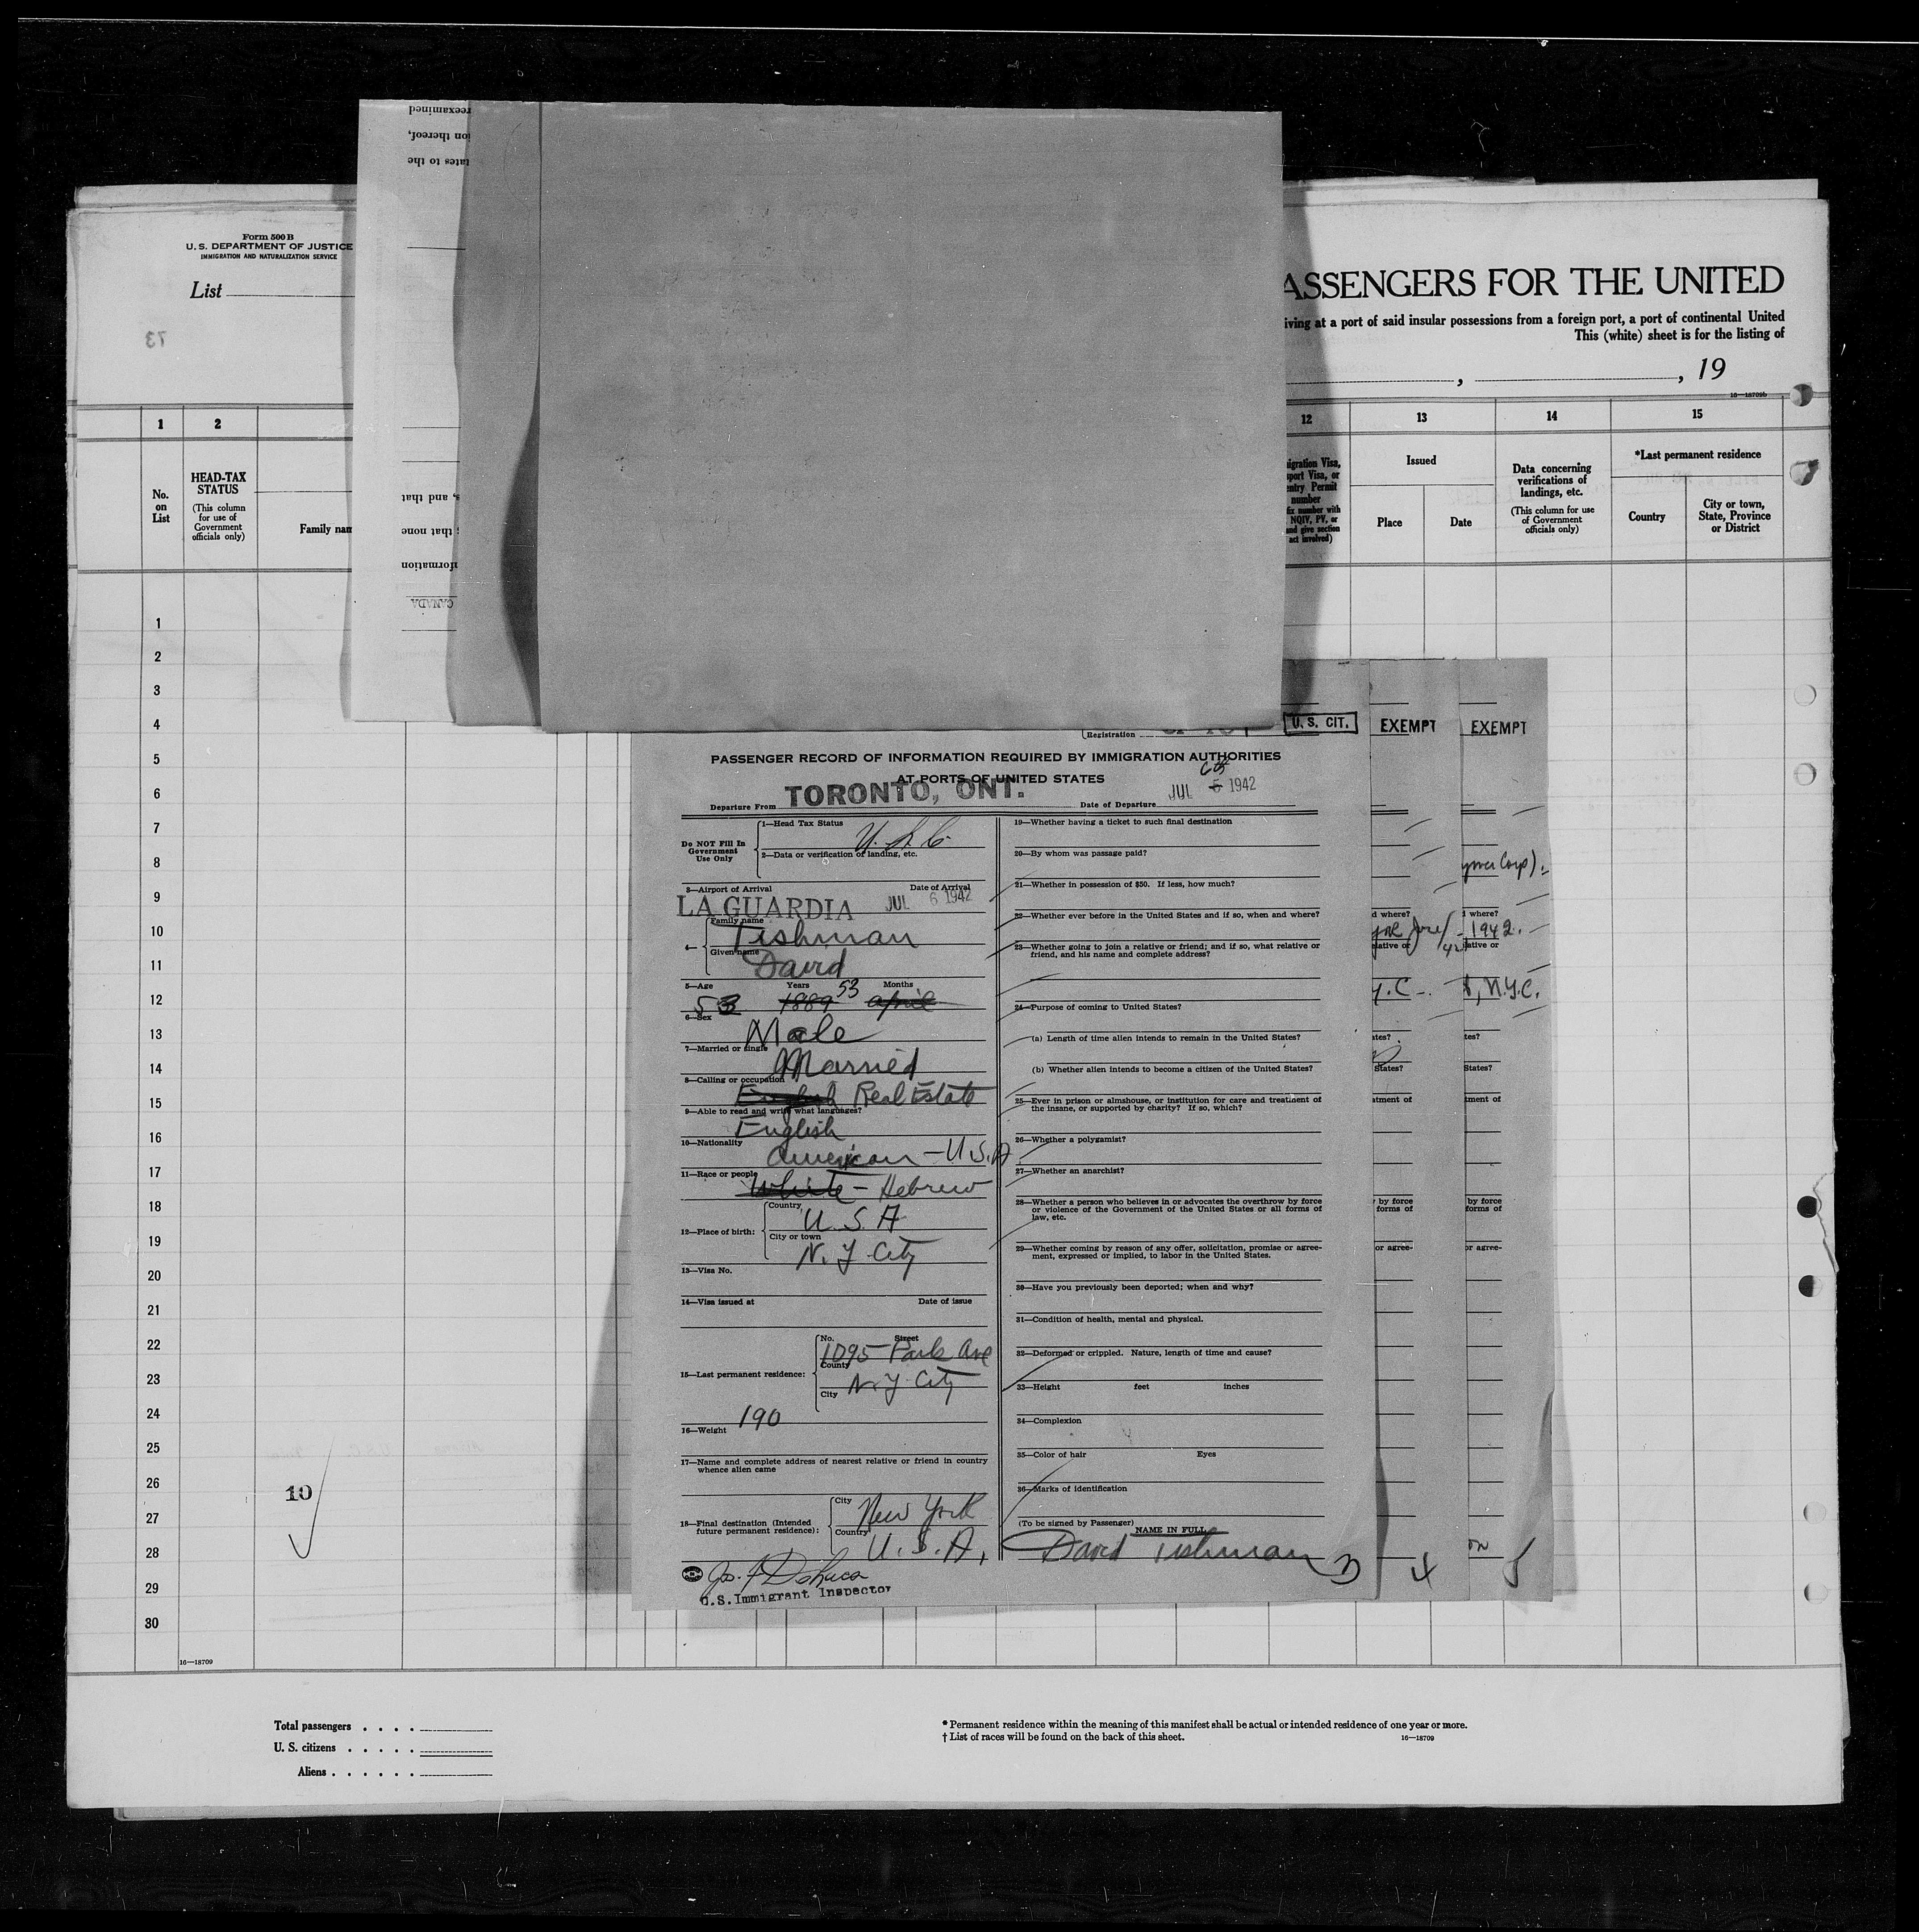 Form 500 B
U. S. DEPARTMENT OF JUSTICE
IMMIGRATION AND NATURALIZATION SERVICE
List
73
reexamined
ion thereof,
tates to the
s, and that
that none
formation
CANADA
ASSENGERS FOR THE UNITED
iving at a port of said insular possessions from a foreign port, a port of continental United
This (white) sheet is for the listing of
, , 19
16—18709b
1 2 12 13 14 15
No. on List
HEAD-TAX STATUS
(This column for use of Government officials only)
Family nam
igration Visa,
sport Visa, or
entry Permit
number
fix number with
NQIV, PV, or
and give section
act involved)
Issued
Place Date
Data concerning verifications of landings, etc.
(This column for use of Government officials only)
*Last permanent residence
Country
City or town, State, Province or District
1
2
3
4
5
6
7
8
9
10
11
12
13
14
15
16
17
18
19
20
21
22
23
24
25
26
27
28
29
30
10
16—18709
Registration
U. S. CIT.
EXEMPT
EXEMPT
PASSENGER RECORD OF INFORMATION REQUIRED BY IMMIGRATION AUTHORITIES
AT PORTS OF UNITED STATES
Departure From TORONTO, ONT. Date of Departure JUL 5 1942
6th
Do NOT Fill In Government Use Only
1—Head Tax Status
U. S. C.
2—Data or verification of landing, etc.
3—Airport of Arrival Date of Arrival
LA GUARDIA JUL 6 1942
4— Family name
Tishman
Given name
David
5—Age Years Months
53 1889 53 April
6—Sex
Male
7—Married or single
Married
8—Calling or occupation
English Real Estate
9—Able to read and write what languages?
English
10—Nationality
American - U.S.A
11—Race or people
White - Hebrew
12—Place of birth: Country
U. S. A
City or town
N. Y City
13—Visa No.
14—Visa issued at Date of issue
15—Last permanent residence: No. Street
1095 Park Ave
County
N. Y City
City
16—Weight 190
17—Name and complete address of nearest relative or friend in country
whence alien came
18—Final destination (Intended
future permanent residence):
City New York
Country U. S. A.
U.S. Immigrant Inspector
19—Whether having a ticket to such final destination
20—By whom was passage paid?
21—Whether in possession of $50. If less, how much?
22—Whether ever before in the United States and if so, when and where?
23—Whether going to join a relative or friend; and if so, what relative or
friend, and his name and complete address?
24—Purpose of coming to United States?
(a) Length of time alien intends to remain in the United States?
(b) Whether alien intends to become a citizen of the United States?
25—Ever in prison or almshouse, or institution for care and treatment of
the insane, or supported by charity? If so, which?
26—Whether a polygamist?
27—Whether an anarchist?
28—Whether a person who believes in or advocates the overthrow by force
or violence of the Government of the United States or all forms of
law, etc.
29—Whether coming by reason of any offer, solicitation, promise or agree-
ment, expressed or implied, to labor in the United States.
30—Have you previously been deported; when and why?
31—Condition of health, mental and physical.
32—Deformed or crippled. Nature, length of time and cause?
33—Height feet inches
34—Complexion
35—Color of hair Eyes
36—Marks of identification
(To be signed by Passenger)
NAME IN FULL
David Tishman
3
d where?
elative or
y. C -.
ates?
States?
atment of
by force
forms of
or agree-
4
Corp).
d where?
- 1942.
lative or
N.Y.C.
tes?
States?
tment of
by force
forms of
or agree-
on
5
Total passengers . . . .
U. S. citizens . . . . .
Aliens . . . . . .
* Permanent residence within the meaning of this manifest shall be actual or intended residence of one year or more.
† List of races will be found on the back of this sheet.
16—18709